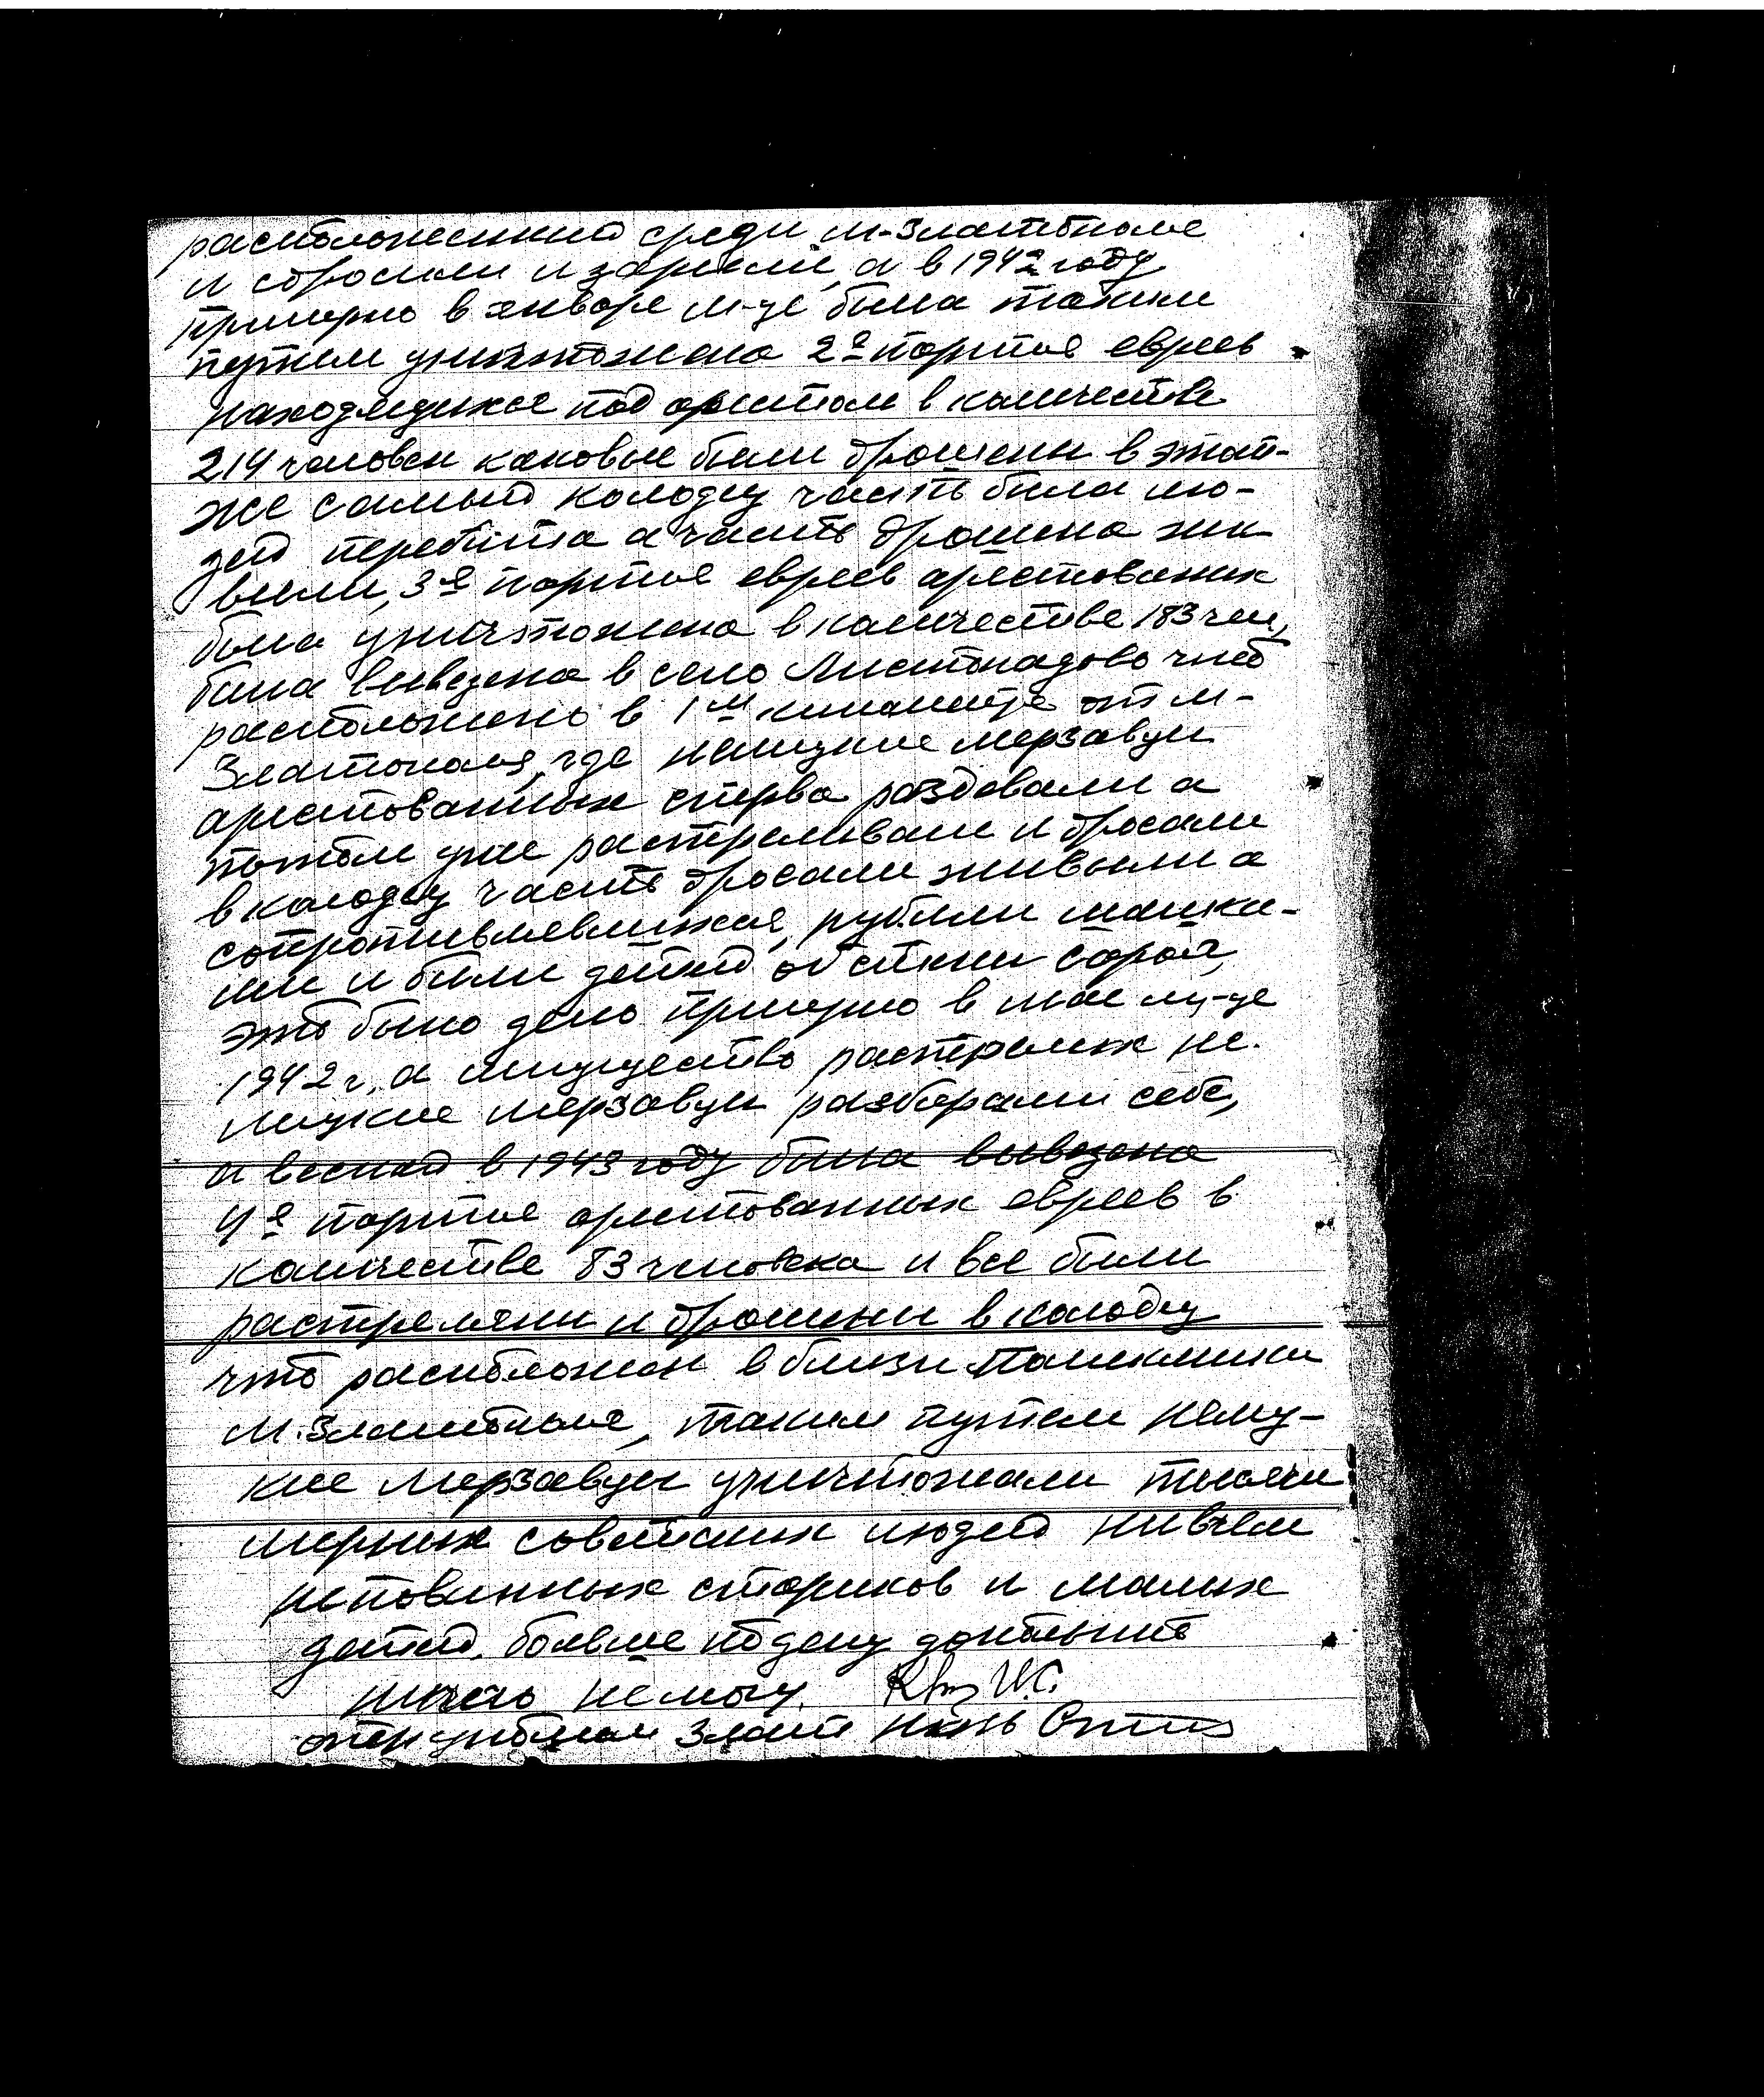 расположенный среди м-Златополе
и сбросили и зарыли, а в 1942 году
примерно в январе м-це была таким
путем уничтожено 2я партия евреев
находящихся под арестом в количестве
214 человек каковые были брошены в этот-
же самый колодец часть была лю-
дей перебита а часть брошена жи-
выми, 3я партия евреев арестованых
была уничтожена в количестве 183 чел,
была вывезена в село Листопадово что
расположено в 1м километре от м-
Златополя, где немецкие мерзавцы
арестованных сперва раздевали а
потом уже расстреливали и бросали
в колодец часть бросали живыми а
сопротивлявшихся, рубили
ми и били детей об стены
это было дело примерно в мае м-це
1942 г, а имущество растрелых не-
мецкие мерзавцы разбирали себе,
а весной в 1943 году была вывезена
4я партия арестованных евреев в
количестве 83 человека и все были
растреляни и брошены в колодец
что расположен в близи поликлиники
М. Златополе, таким путем немец-
кие мерзавцы уничтожали тысячи
мирных советских людей нивчем
неповинных стариков и малых
детей. больше по делу
ничего немогу.